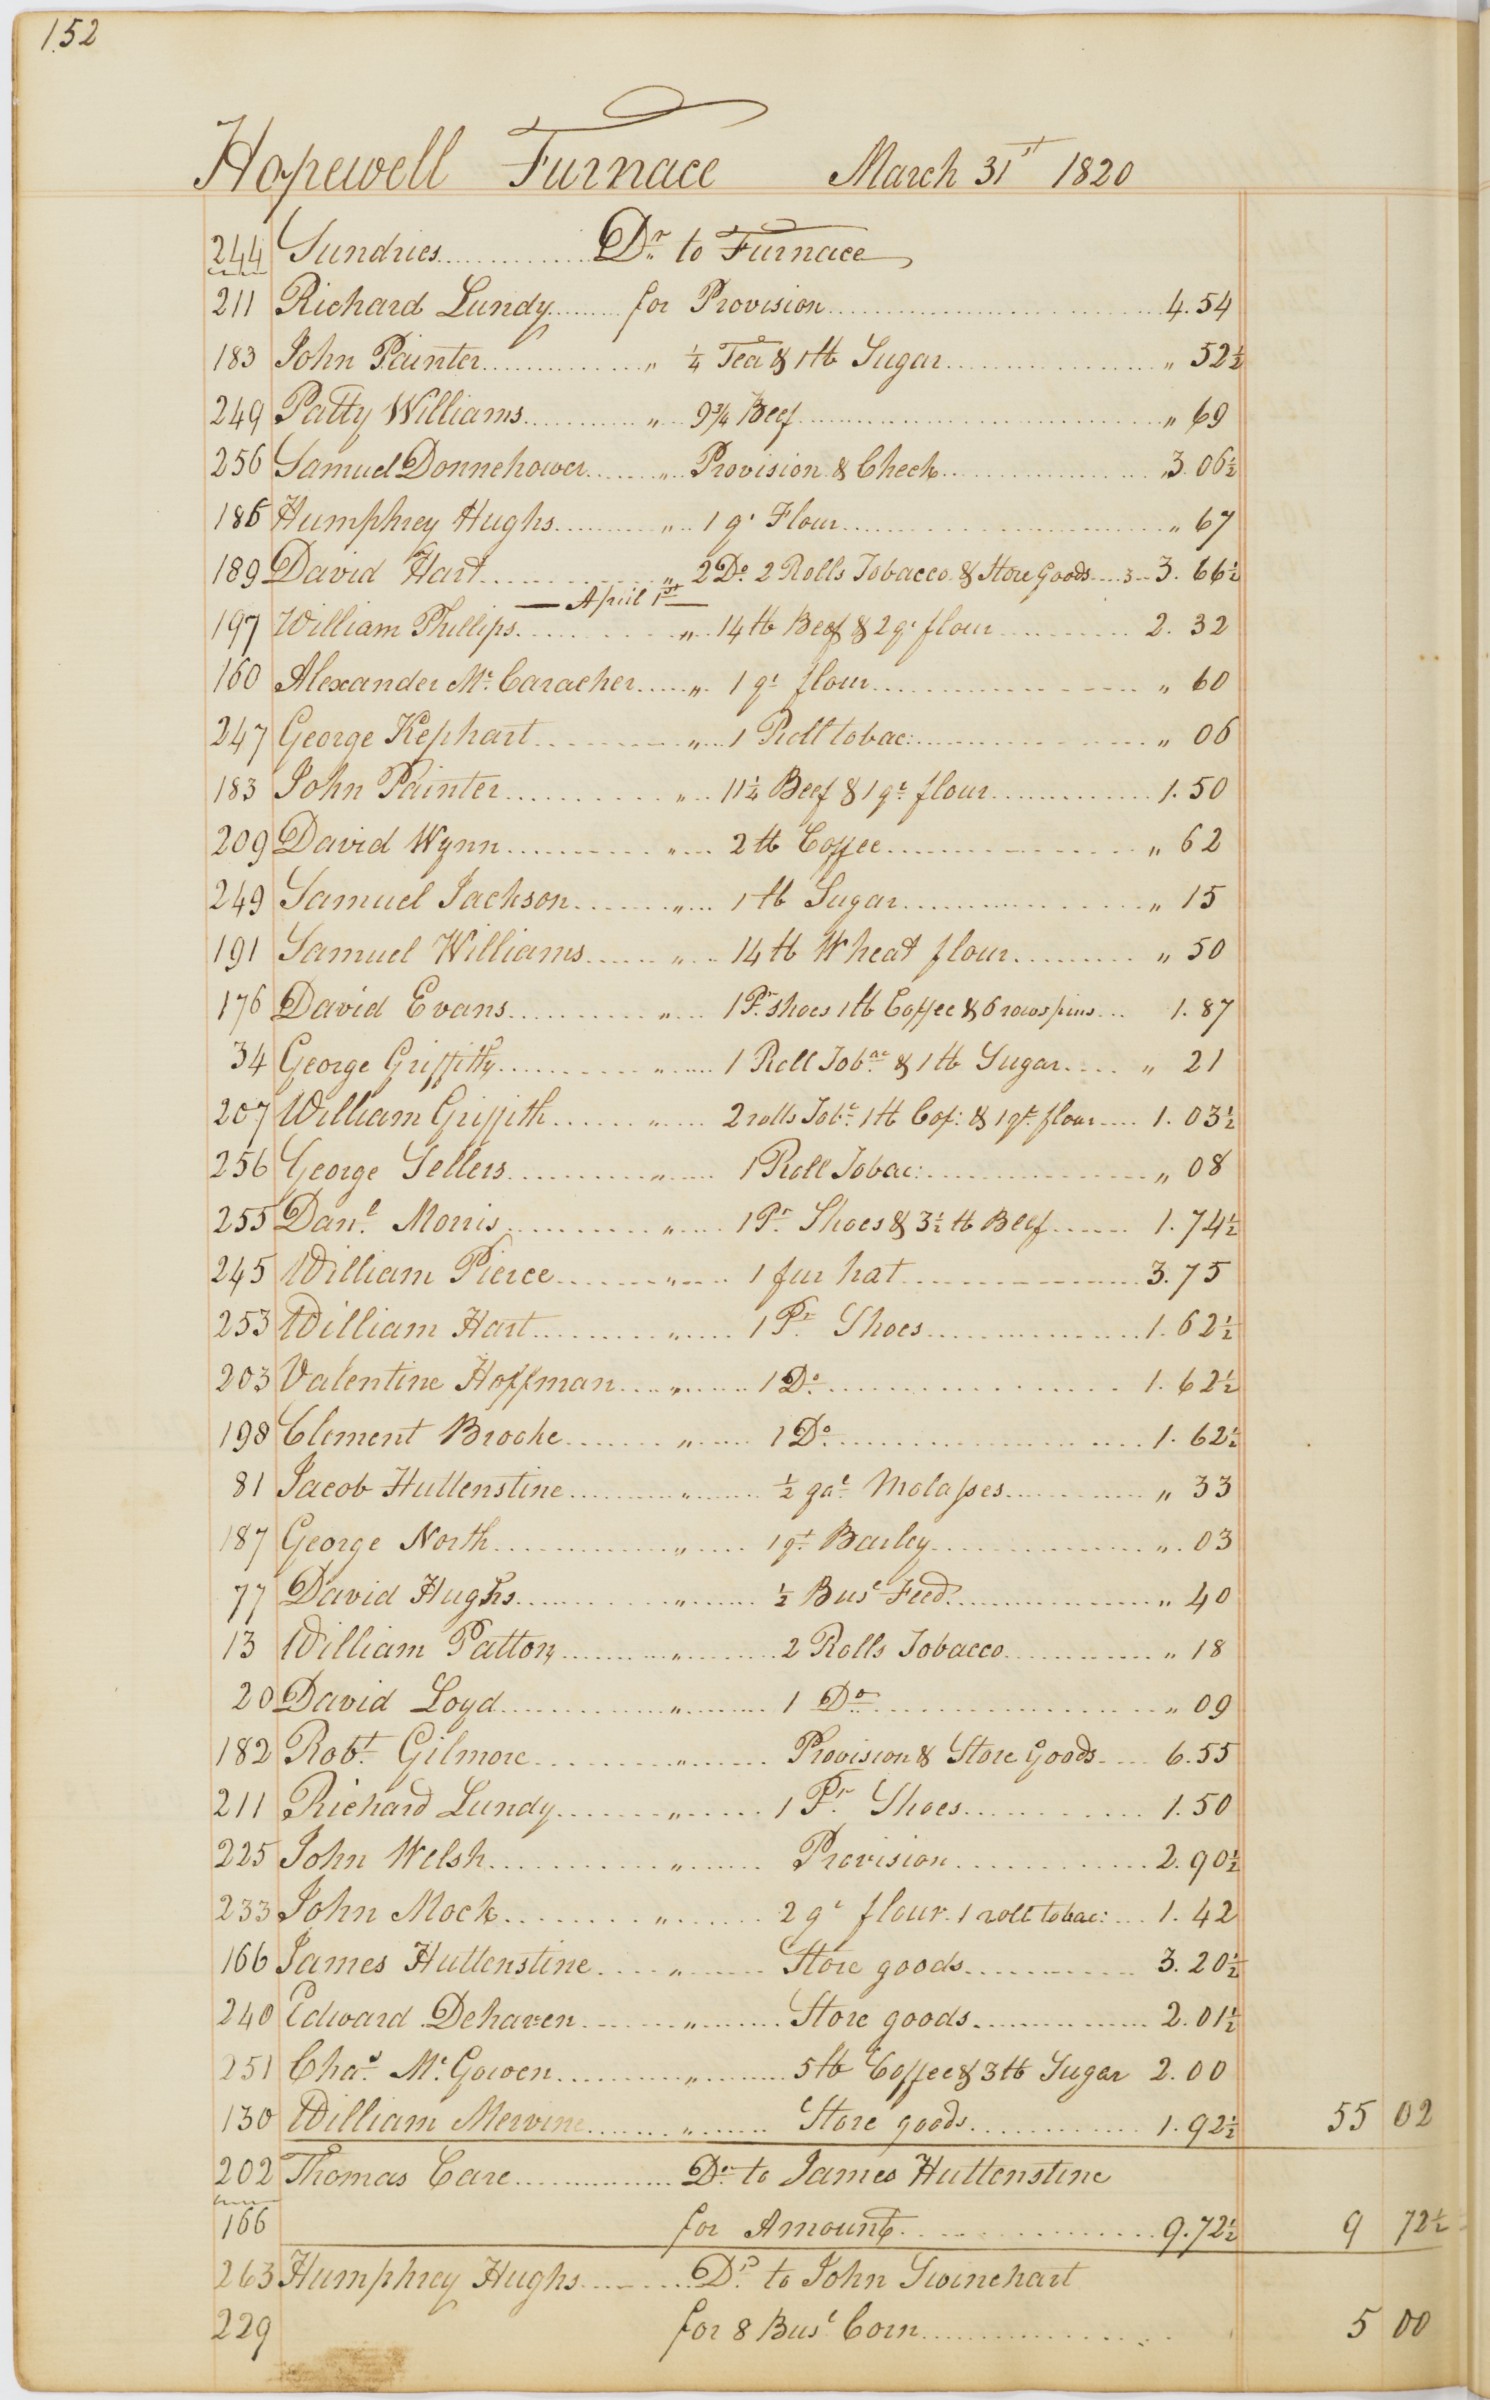 152
Hopewell Furnace March 31st 1820
244 Sundries Dr. to Furnace
211 Richard Lundy for Provision 4.54
183 John Painter " ¼ Tea & 1 lb Sugar " 52½
249 Patty Williams " 9¾ Beef " 69
256 Samuel Donnehower " Provision & Check 3.06½
186 Humphrey Hughs " 1 qr Flour " 67
189 David Hart " 2 Do. 2 Rolls Tobacco & Store Goods 3. 66½
— April 1st —
197 William Phillips " 14 lb Beef & 2 qr flour 2. 32
160 Alexander Mc. Caracher " 1 qr flour " 60
247 George Kephart " 1 Roll tobac: " 06
183 John Painter " 11¼ Beef & 1 qr. flour 1.50
209 David Wynn " 2 lb Coffee " 62
249 Samuel Jackson " 1 lb Sugar " 15
191 Samuel Williams " 14 lb Wheat flour " 50
176 David Evans " 1 Pr. shoes 1 lb Coffee & 6 rows pins 1.87
34 George Griffith " 1 Roll Tobac. & 1 lb Sugar " 21
207 William Griffith " 2 rolls Tobc. 1 lb Cof: & 1 qr. flour 1. 03½
256 George Sellers " 1 Roll Tobac: " 08
255 Danl. Morris " 1 Pr. Shoes & 3½ lb Beef 1.74½
245 William Pierce " 1 fur hat 3.75
253 William Hart " 1 Pr. Shoes 1.62½
203 Valentine Hoffman " 1 Do. 1. 62½
198 Clement Brooke " 1 Do. 1. 62½
81 Jacob Huttenstine " ½ gal. Molasses " 33
187 George North " 1 qt. Barley " 03
77 David Hughs " ½ Busl. Feed " 40
13 William Patton " 2 Rolls Tobacco " 18
20 David Loyd " 1 Do " 09
182 Robt. Gilmore " Provision & Store Goods 6.55
211 Richard Lundy " 1 Pr. Shoes 1.50
225 John Welsh " Provision 2.90½
233 John Mock " 2 qr flour. 1 roll tobac: 1. 42
166 James Huttenstine " Store goods 3. 20½
240 Edward Dehaven " Store goods 2. 01½
251 Chas. Mc. Gowen " 5 lb Coffee & 3 lb Sugar 2. 00
130 William Mervine " Store goods 1. 92½ 55 02
202 Thomas Care Dr. to James Huttenstine
166 for Amount 9.72½ 9 72½
263 Humphrey Hughs Dr. to John Swinehart
229 for 8 Busl. Corn 5 00